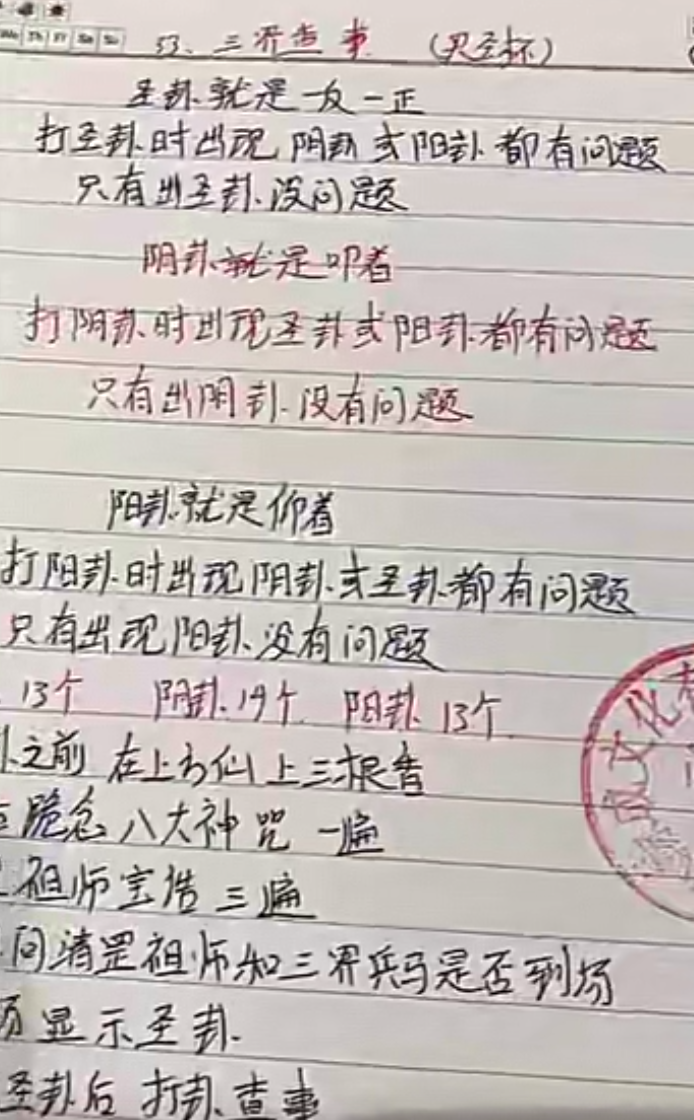 53、三界查事 （灵圣杯）
圣卦就是一反一正
打圣卦时出现阴卦或阳卦都有问题
只有出圣卦没问题
阴卦就是叩着
打阴卦时出现圣卦或阳卦都有问题
只有出阴卦没有问题
阳卦就是仰着
打阳卦时出现阴卦或圣卦都有问题
只有出现阳卦没有问题
13个 阴卦14个 阳卦13个
之前在上方仙上三根香
跪念八大神咒一遍
祖师宝诰三遍
问请罡祖师和三界兵马是否到场
显示圣卦
圣卦后打卦查事
文化